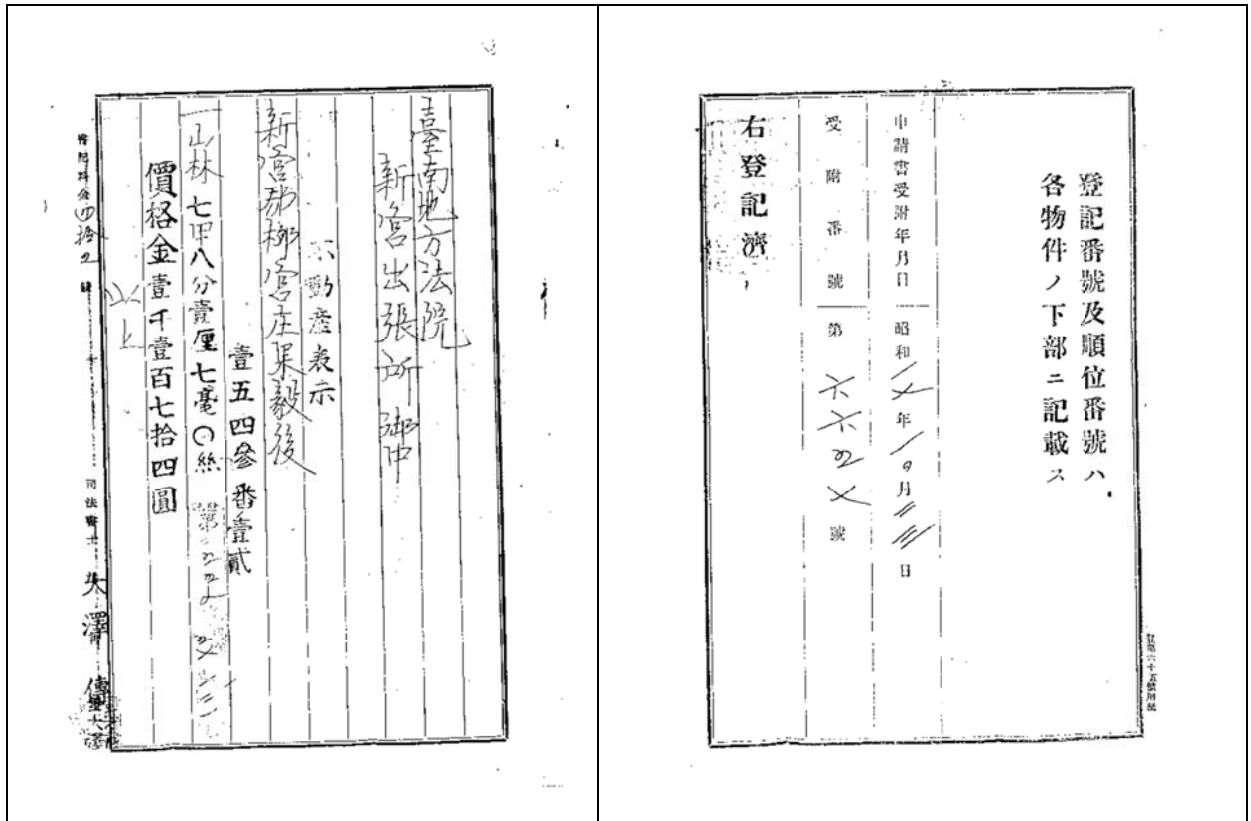 臺南地方法院
新營出張所 御中
不動產表示
新營郡柳營庄果毅後
壹五四參番壹貳
一山林 七甲八分壹厘七毫〇絲
價格金壹千壹百七拾四圓
以上
司法書士
登記番號及順位番號ハ
各物件ノ下部ニ記載ス
申請書受附年月日 昭和 年 月 日
受附番號 第 號
右登記濟